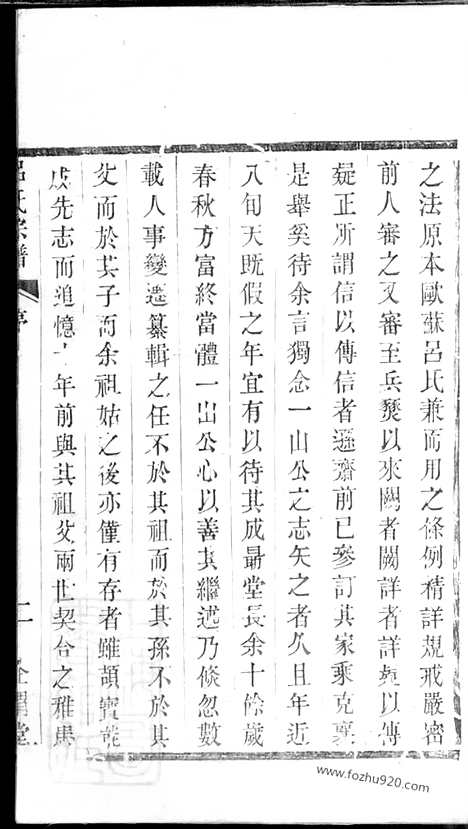 之法原本歐蘇呂氏兼而用之條例精詳規戒嚴密
前人審之又審至兵燹以來闕者闕詳者詳疑以傳
疑正所謂信以傳信者遜齋前已參訂其家乘克襄
是舉奚待余言獨念一山公之志矢之者久且年近
八旬天既假之年宜有以待其成勗堂長余十餘歲
春秋方富終當體一山公心以善其繼述乃倏忽數
載人事變遷纂輯之任不於其祖而於其孫不於其
父而於其子而余祖姑之後亦僅有存者雖頡寶能
成先志而追憶十年前與其祖父兩世契合之雅與
呂氏宗譜
序
二
www.fozhu920.com